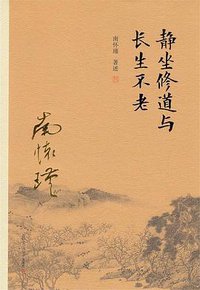 静坐修道与
长生不老
南怀瑾 著述
南懷瑾